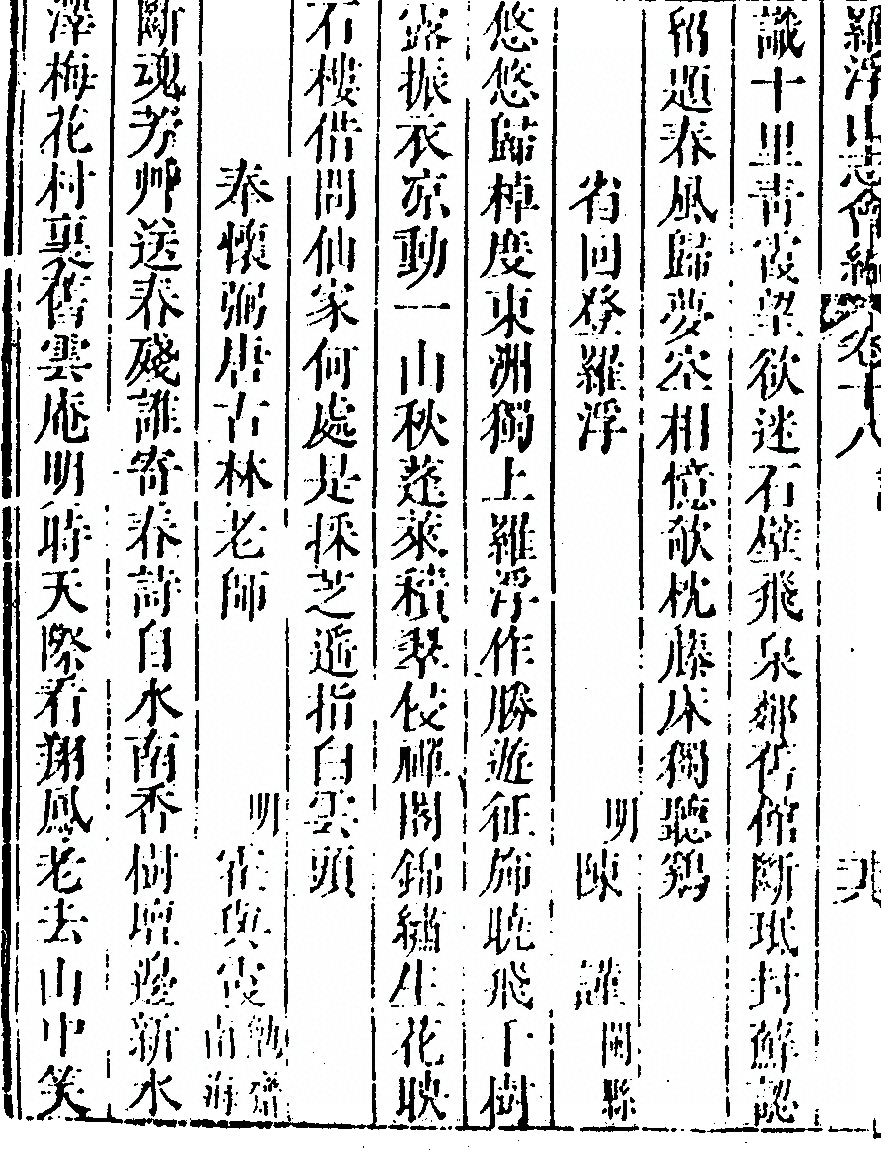 羅浮山志會編 卷十八
識十里青霞望欲迷石壁飛泉鄰舊館斷珉封蘚認
留題春風歸夢空相憶欹枕藤床獨聽鷄
省回登羅浮 明 陳 謹 閩縣
悠悠歸棹度東洲獨上羅浮作勝遊征旆曉飛千樹
露振衣凉動一山秋蓬萊積翠侵禪閣錦繡生花映
石樓借問仙家何處是採芝遙指白雲頭
奉懷弼唐古林老師 明 霍與霞 勉齋 南海
斷魂芳艸送春殘誰寄春詩自水南香樹壇邊新水
澤梅花村裏舊雲庵明時天際看翔鳳老去山中笑